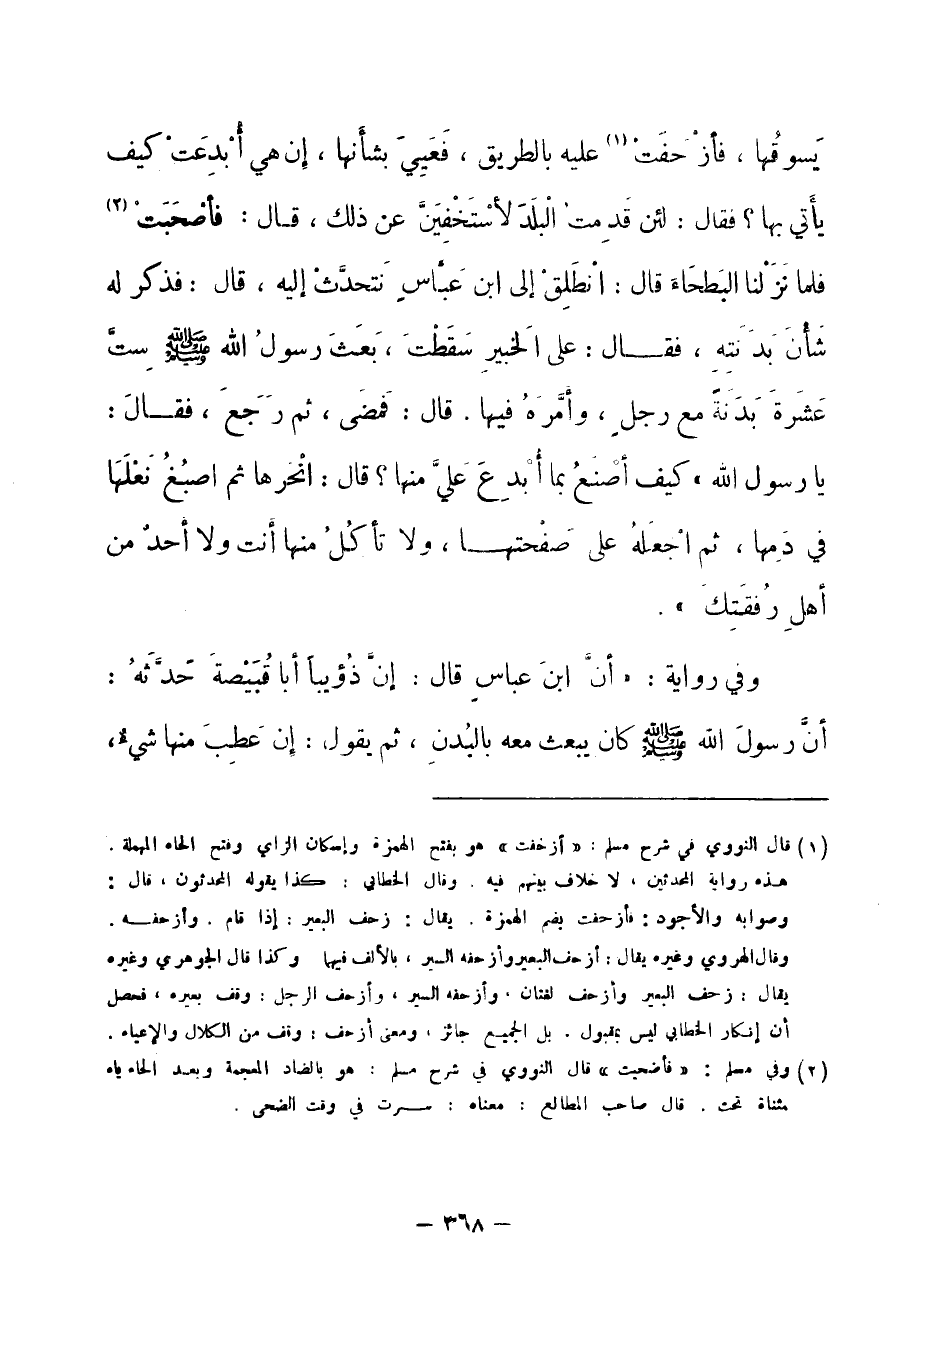 يَسوقُها ، فأزْحَفَتْ (١) عليه بالطريق ، فَعَيِيَ بشأنها ، إن هي أُبْدِعَتْ كيف
يأتي بها ؟ فقال : لئن قدِمتُ الْبلَدَ لأَسْتَخْفِيَنَّ عن ذلك ، قـال : فأصْحَبَتْ (٢)
فلما نَزَلْنا البَطحَاءَ قال : انْطَلِقْ إلى ابن عَبَّاسٍ نَتحدَّثْ إليه ، قال : فذكر له
شَأْنَ بَدَنتِهِ ، فقـــال : على الخبيرِ سَقَطْتَ ، بَعَثَ رسولُ الله ﷺ ستَّ
عَشرَةَ بَدَنَةً مع رجلٍ ، وأَمَّرَهُ فيها . قال : فمضَى ، ثم رَجَعَ ، فقـــالَ :
يا رسول الله ، كيف أصْنَعُ بما أُبْدِعَ عَليَّ منها ؟ قال : انْحَرها ثم اصبُغُ نَعْلَهَا
في دَمِها ، ثم اجْعَلهُ على صَفْحتهـــا ، ولا تأكُلُ منها أنت ولا أحدٌ من
أهلِ رُفقَتِكَ » .
وفي رواية : « أنَّ ابنَ عباسٍ قال : إنَّ ذُؤيباً أبا قُبَيْصةَ حَدَّثهُ :
أنَّ رسولَ الله ﷺ كان يبعث معه بالبُدنِ ، ثم يقول : إن عَطِبَ منها شيءٌ ،
(١) قال النووي في شرح مسلم : « أزحفت » هو بفتح الهمزة وإسكان الزاي وفتح الحاء المهملة .
هـذه رواية المحدثين ، لا خلاف بينهم فيه . وقال الخطابي : كـذا يقوله المحدثون ، قال :
وصوابه والأجود : فأزحفت بضم الهمزة . يقال : زحف البعير : إذا قام . وأزحفـــه .
وقال الهروي وغيره يقال : أزحف البعير وأزحفه السير ، بالألف فيهما وكذا قال الجوهري وغيره
يقال : زحف البعير وأزحف لغتان ، وأزحفه السير ، وأزحف الرجل : وقف بعيره ، فحصل
أن إنكار الخطابي ليس بمقبول . بل الجميع جائز ، ومعنى أزحف : وقف من الكلال والإعياء .
(٢) وفي مسلم : « فأضحيت » قال النووي في شرح مسلم : هو بالضاد المعجمة وبعـد الحاء ياء
مثناة تحت . قال صاحب المطالع : معناه : ســـرت في وقت الضحى .
– ٣٦٨ –